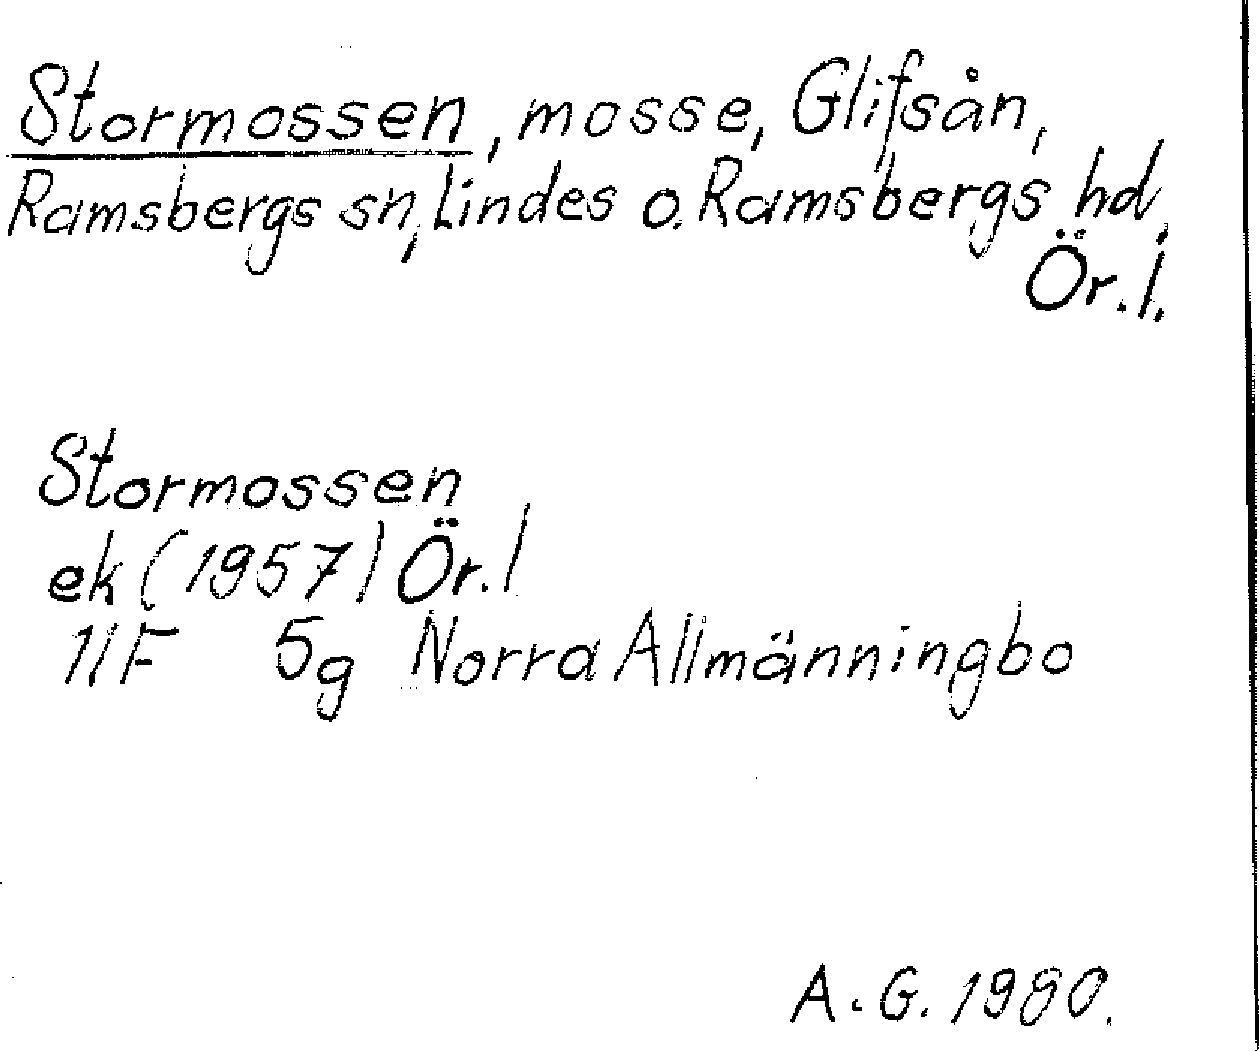 Stormossen, mosse, Glifsån,
Ramsbergs sn, Lindes o. Ramsbergs hd,
Ör. l.
Stormossen
ek (1957) Ör. l
11F 5g Norra Allmänningbo
A. G. 1980.